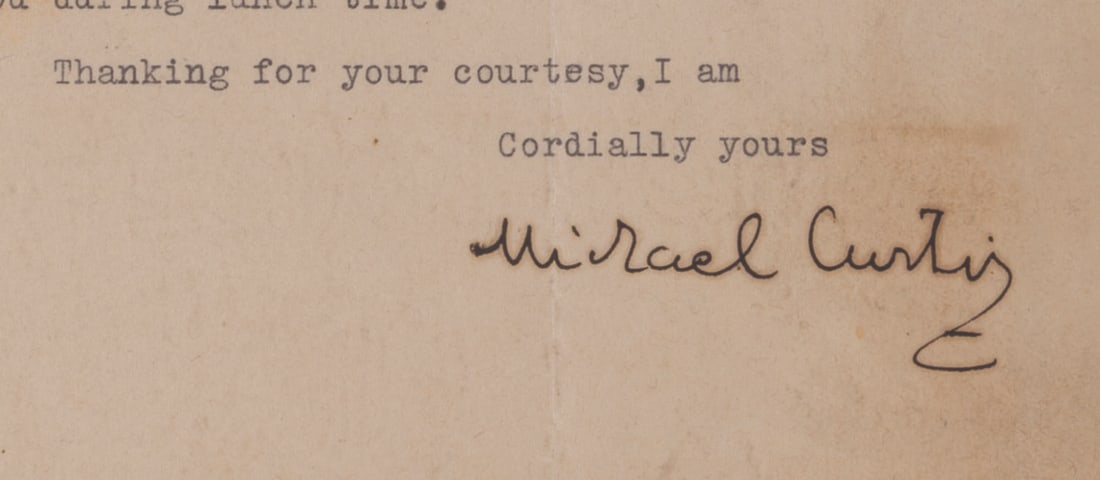 during lunch time.
Thanking for your courtesy,I am
Cordially yours
Michael Curtiz